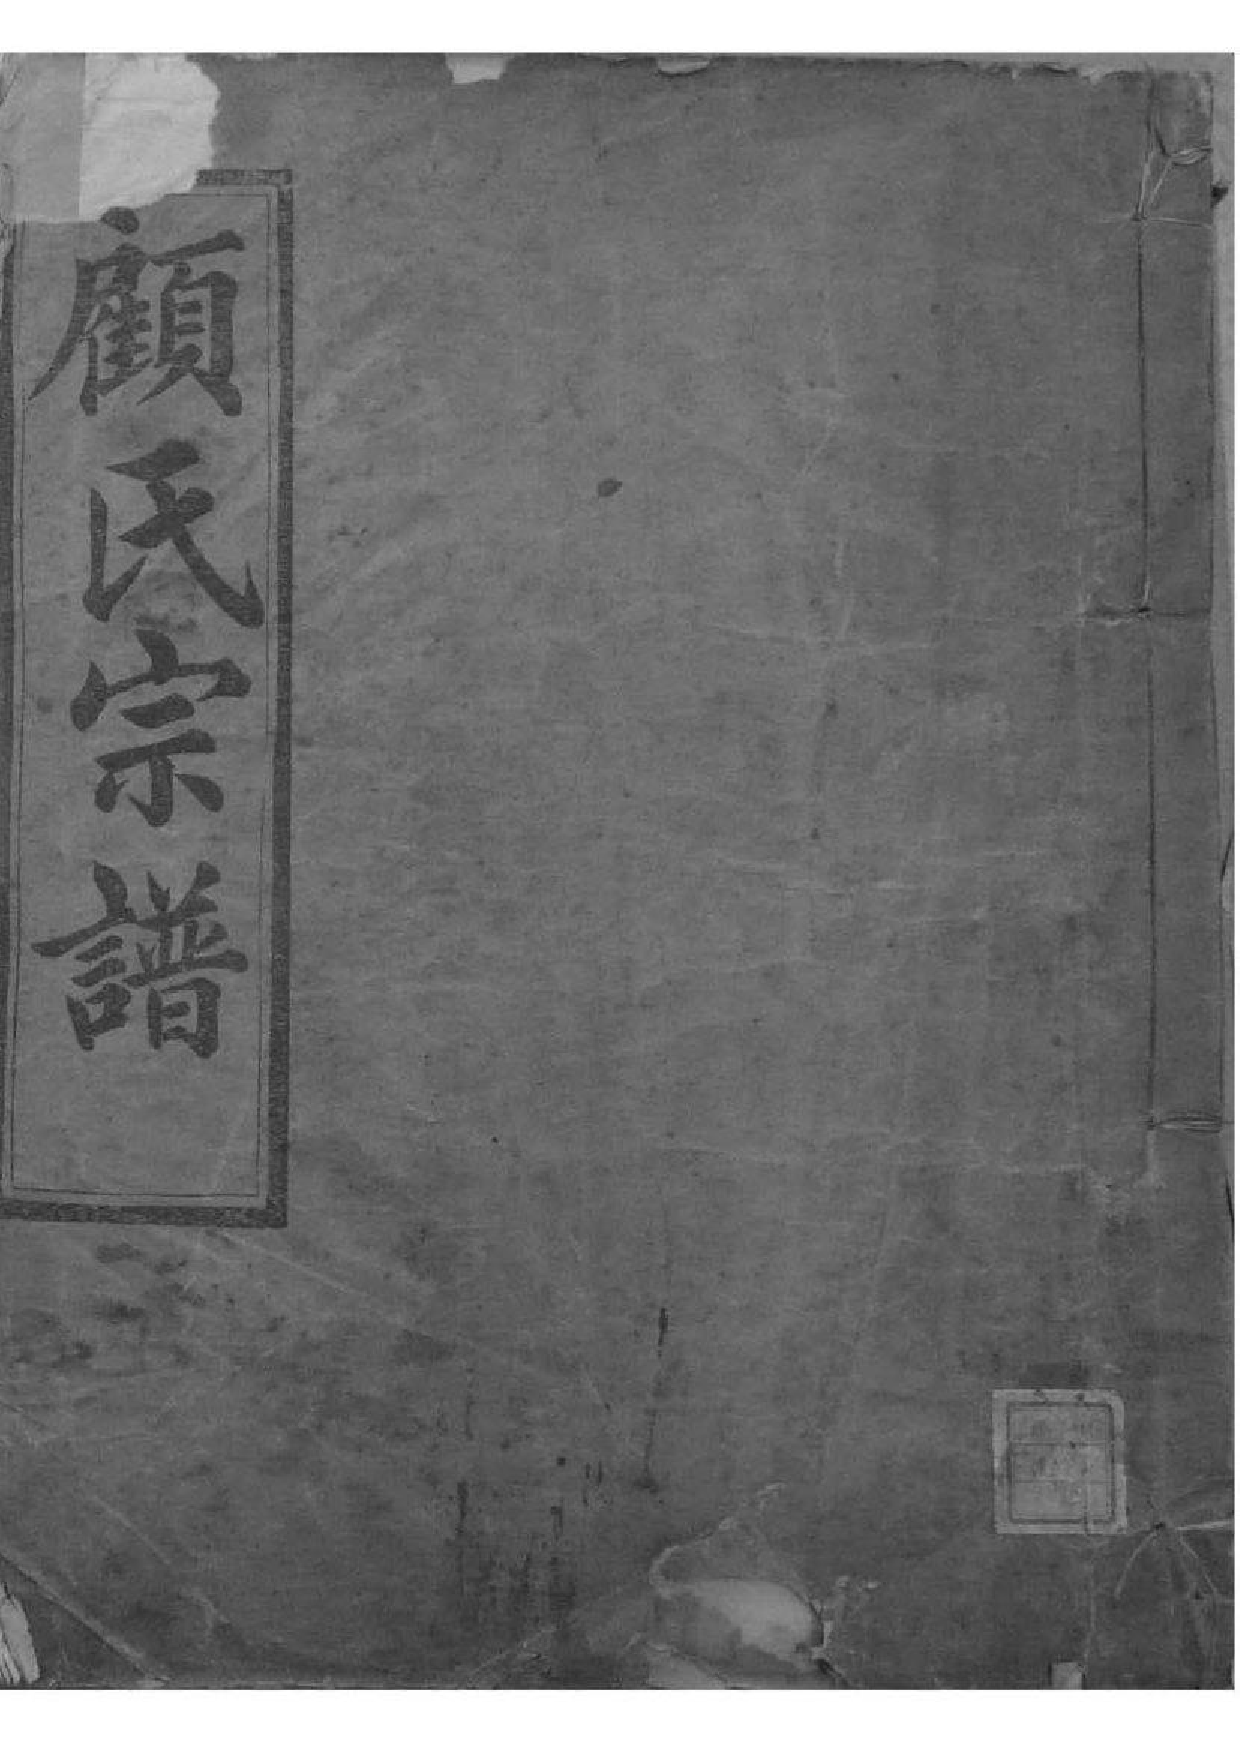 顧氏宗譜